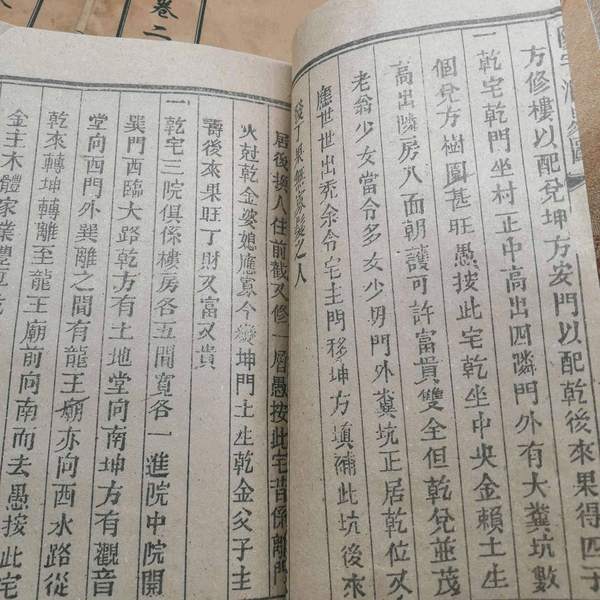 方修樓以配兌坤方安門以配乾後來果得四子
一乾宅乾門坐村正中高出四隣門外有大糞坑數
個兌方樹園甚旺愚按此宅乾坐中央金賴土生
高出隣房八面朝護可許富貴雙全但乾兌並茂
老翁少女當令多女少男門外糞坑正居乾位又
應世世出禿余令宅主門移坤方填補此坑後來
發了果無禿髮之人
居後換人住前截又修一層愚按此宅昔係離門
火尅乾金婆媳應寡今變坤門土生乾金父子主
壽後來果旺了財又富又貴
一乾宅三院俱係樓房各五間寬各一進院中院開
巽門西臨大路乾方有土地堂向南坤方有觀音
堂向西門外巽離之間有龍王廟亦向西水路從
乾來轉坤轉離至龍王廟前向南而去愚按此宅
金主木體家業豐
卷二